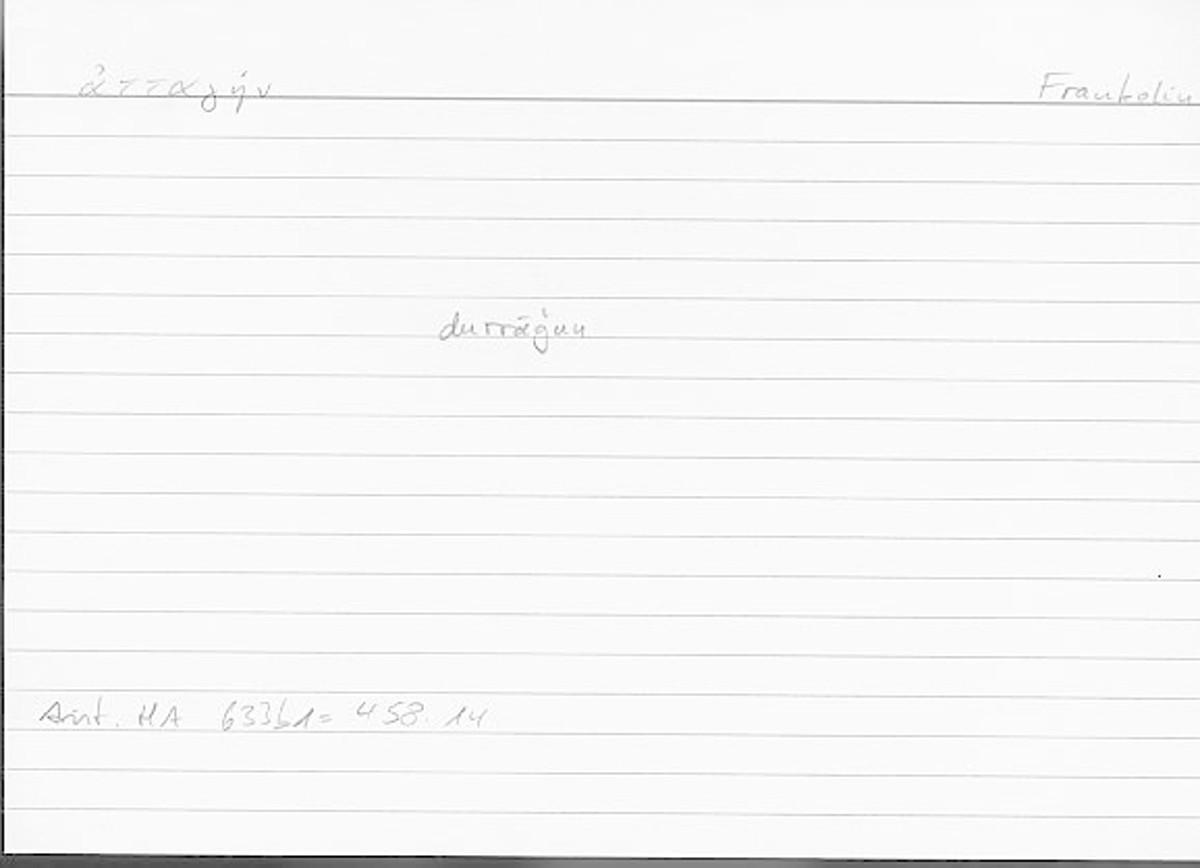 ἀτταγήν Frankolin
durrāǧun
Arist. HA 633b1= 458.14